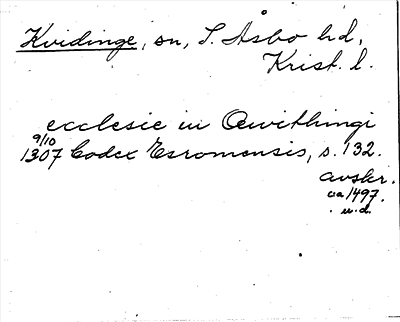 Kvidinge, sn, S. Åsbo hd,
Krist. l.
ecclesie in Qwithingi
9/10
1307 Codex Esromensis, s. 132.
avskr.
ca 1497.
u.d.